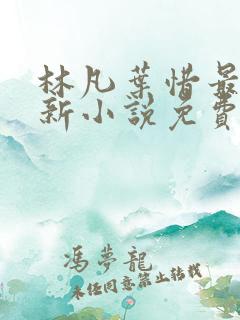 林凡葉惜最
新小說免費
馮夢龍
未經同意禁止轉載